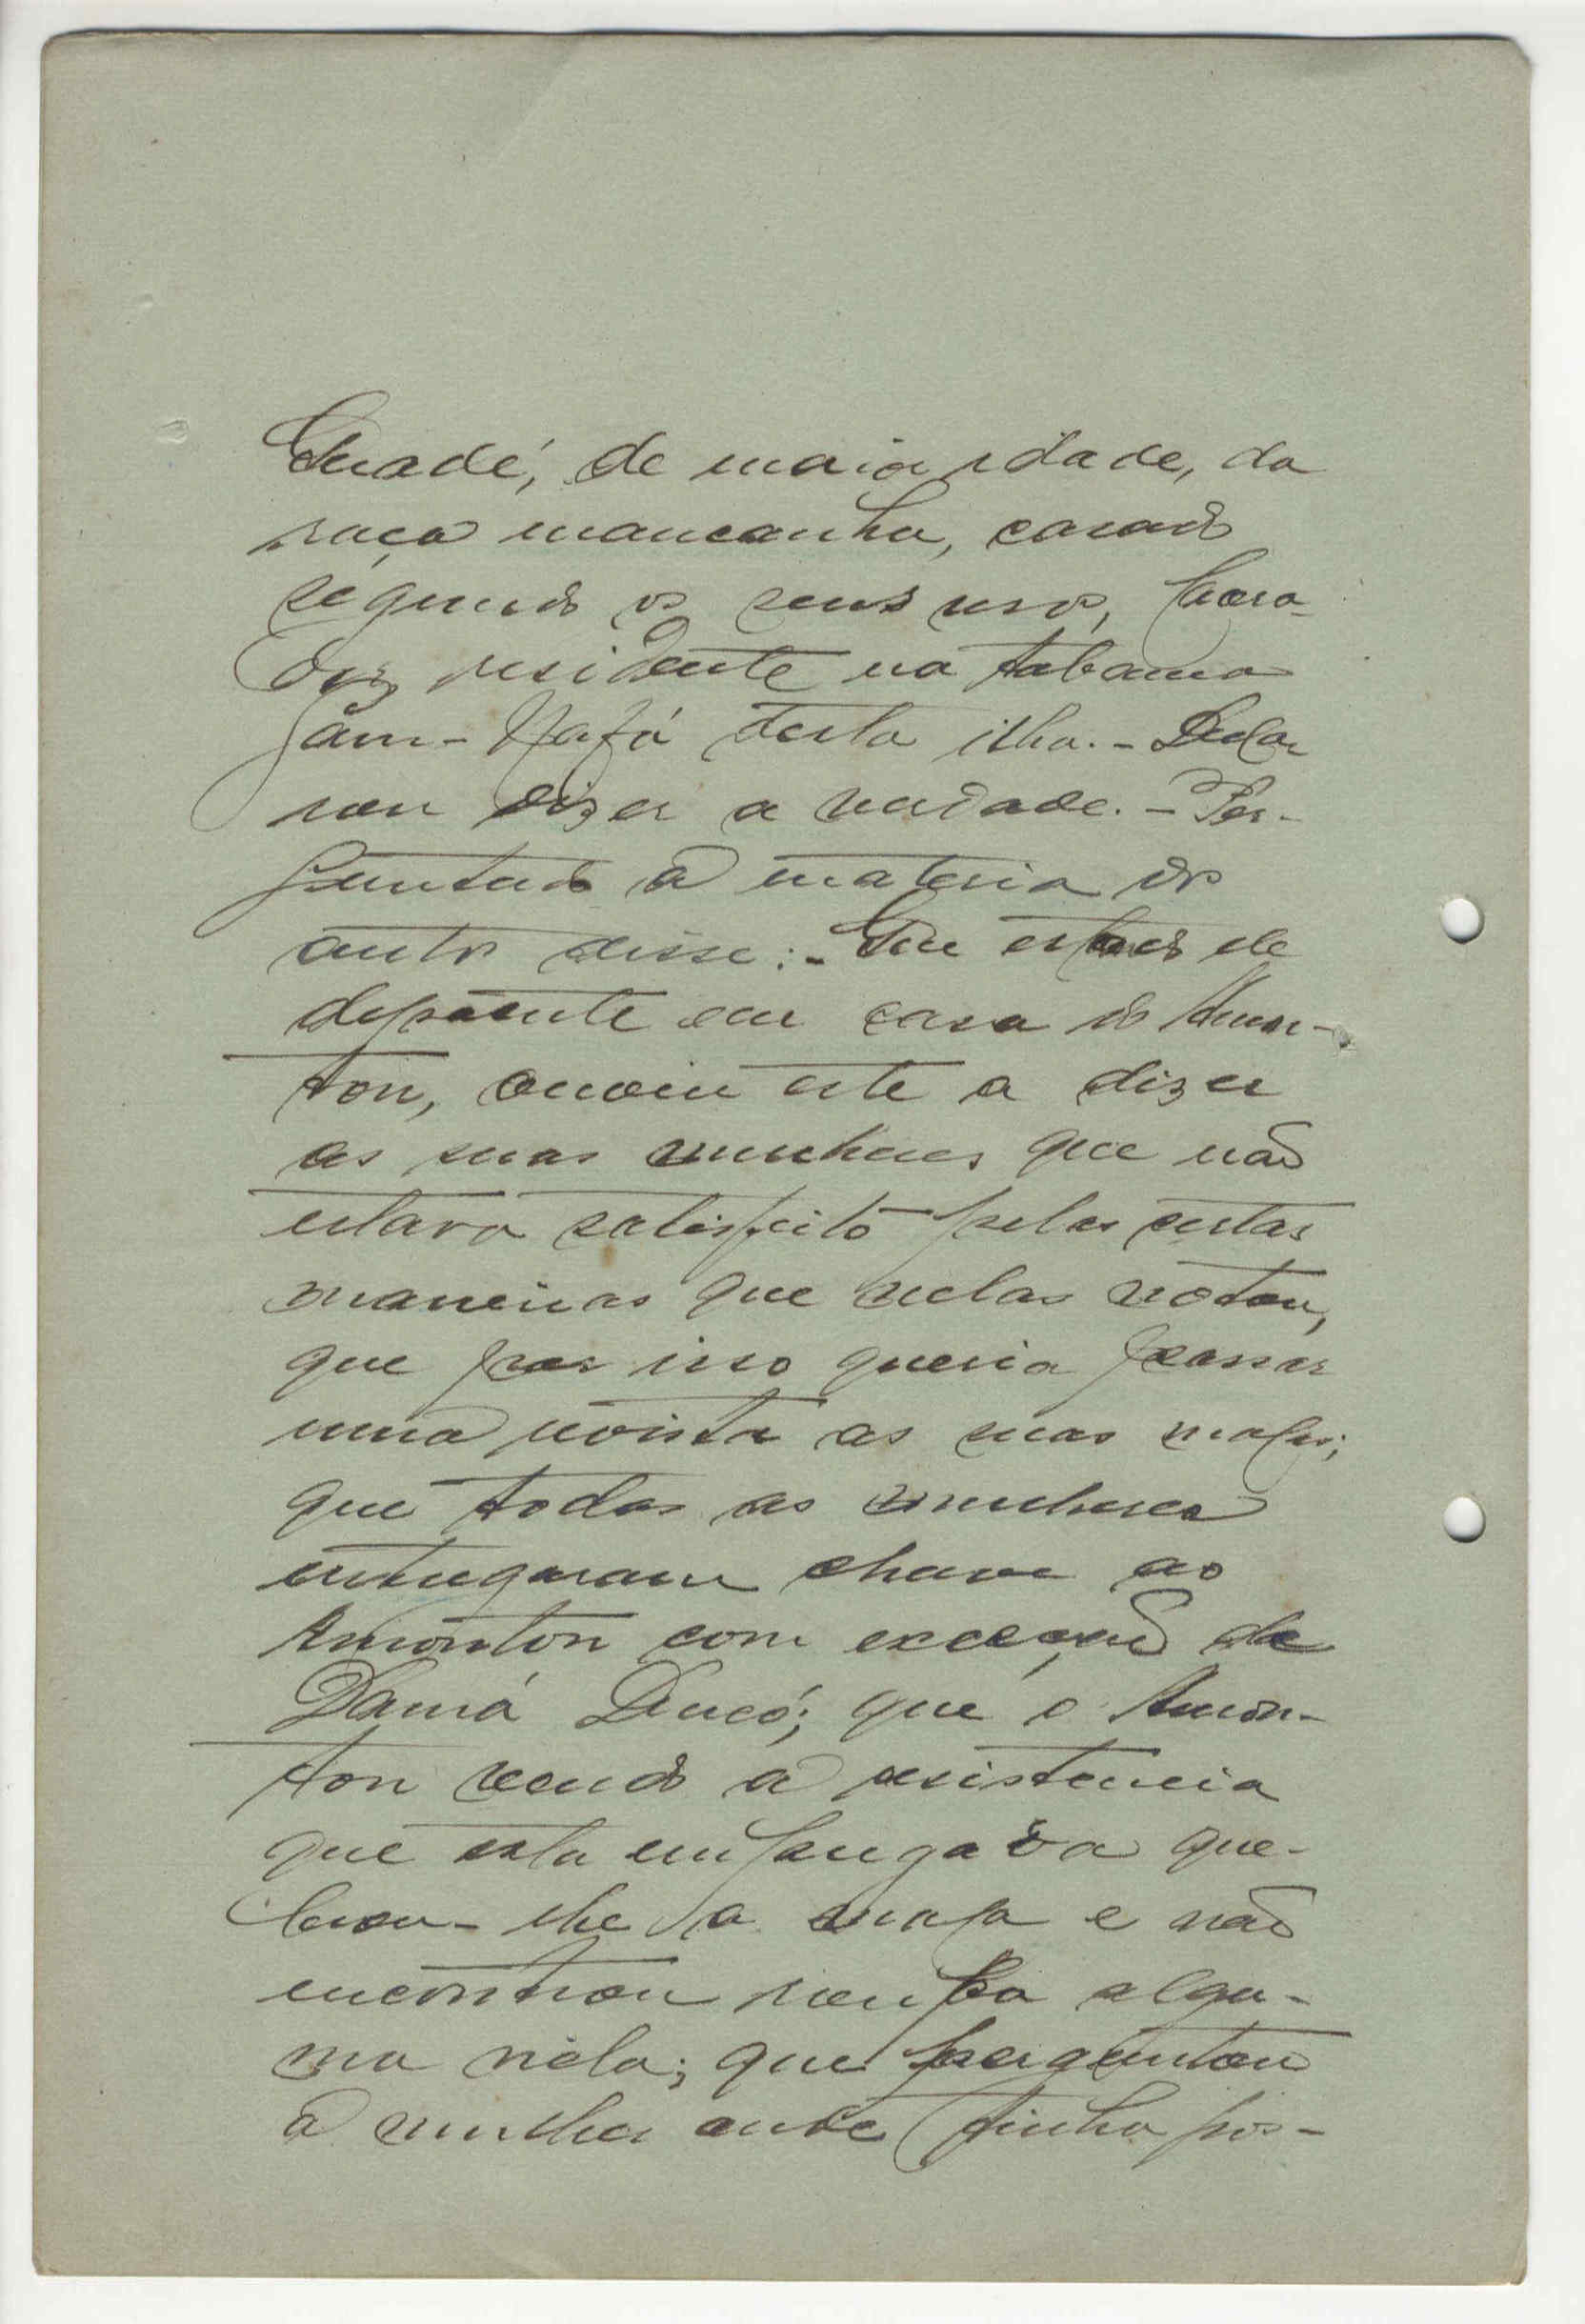 Quadé, de maior idade, da
raça mancanha, casado
segundo os seus usos, lavra-
dor, residente na tabanca
Jam-Nafá desta ilha.- Decla
rou dizer a verdade.- Per-
guntado a materia dos
autos disse:- Que estando ele
depoente em casa do Amon-
ton, ouviu este a dizer
as suas mulheres que não
estava satisfeito pelas certas
maneiras que nelas notou,
que por isso queria passar
uma revista as suas malas;
que todas as mulheres
entregaram chave ao
Amonton com exceção de
Damá Decó; que o Amon-
ton vendo a resistencia
que esta empregava que-
brou-lhe a mala e não
encontrou roupa algu-
ma nela; que perguntou
a mulher onde tinha pos-